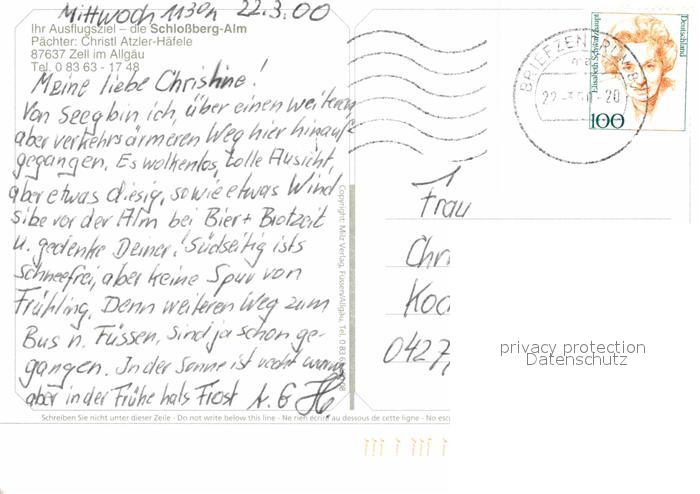 Mittwoch 11³⁰h 22.3.00
Ihr Ausflugsziel – die Schloßberg-Alm
Pächter: Christl Atzler-Häfele
87637 Zell im Allgäu
Tel. 0 83 63 - 17 48
Meine liebe Christine!
Von Seeg bin ich, über einen weiteren
aber verkehrsärmeren Weg hier hinauf
gegangen. Es wolkenlos, tolle Aussicht,
aber etwas diesig, sowie etwas Wind
sibe vor der Alm bei Bier + Brotzeit
u. gedenke Deiner! Südseitig ists
schneefrei, aber keine Spur von
Frühling. Denn weiteren Weg zum
Bus n. Füssen, sind ja schon ge-
gangen. In der Sonne ist recht warm,
aber in der Frühe hals Frost
Copyright: Milz Verlag, Füssen/Allgäu, Tel. 0 83 62
Schreiben Sie nicht unter dieser Zeile - Do not write below this line - Ne rien écrire au dessous de cette ligne - No esc
BRIEFZENTRUM 87
22.-3.00-20
Deutschland
Elisabeth Schwarzhaupt
100
Frau
Chri
Koc
0427
privacy protection
Datenschutz